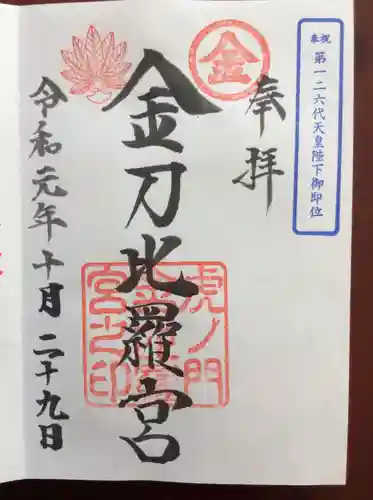 奉祝
第一二六代天皇陛下御即位
奉拝
金
金刀比羅宮
虎ノ門
金刀比羅
宮之印
令和元年十月二十九日